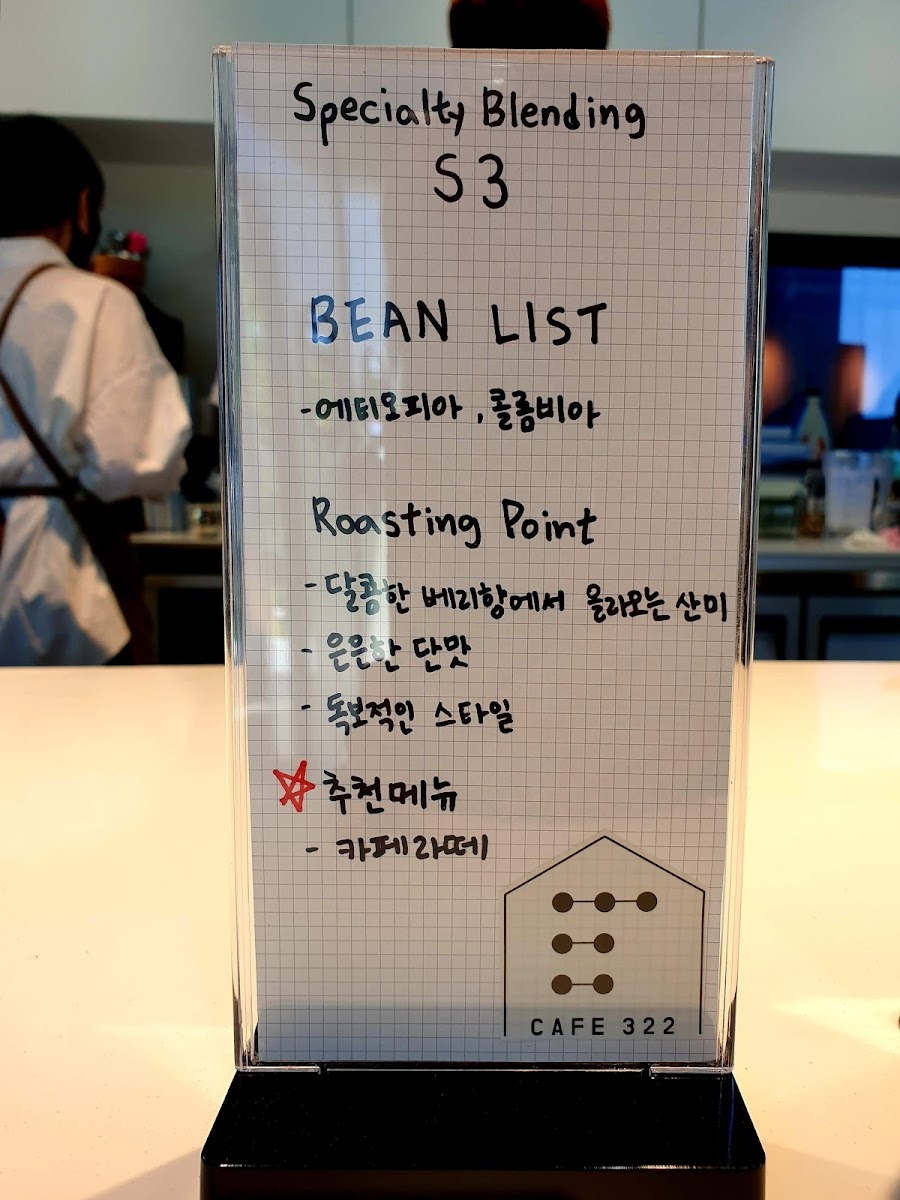 Specialty Blending
S3
BEAN LIST
-에티오피아, 콜롬비아
Roasting Point
-달콤한 베리향에서 올라오는 산미
- 은은한 단맛
- 독보적인 스타일
☆추천메뉴
- 카페라떼
CAFE 322